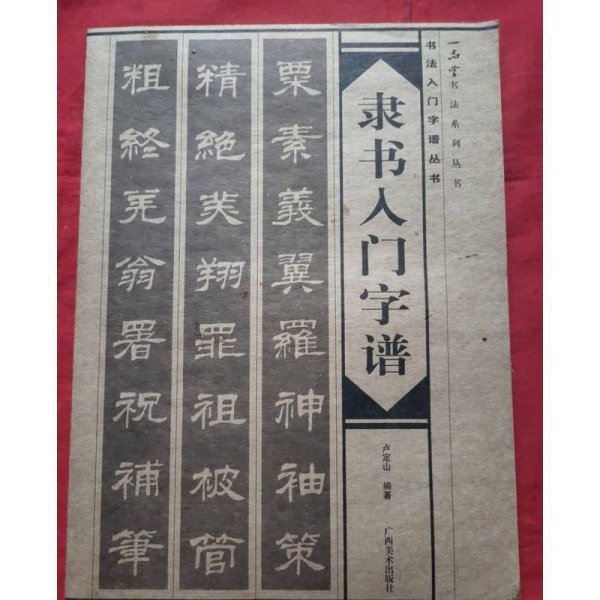 一品堂书法系列丛书
书法入门字谱丛书
隶书入门字谱
卢定山 编著
广西美术出版社
粟素義翼羅神袖策
精絕美翔罪祖被管
粗終羌翁署祝補筆